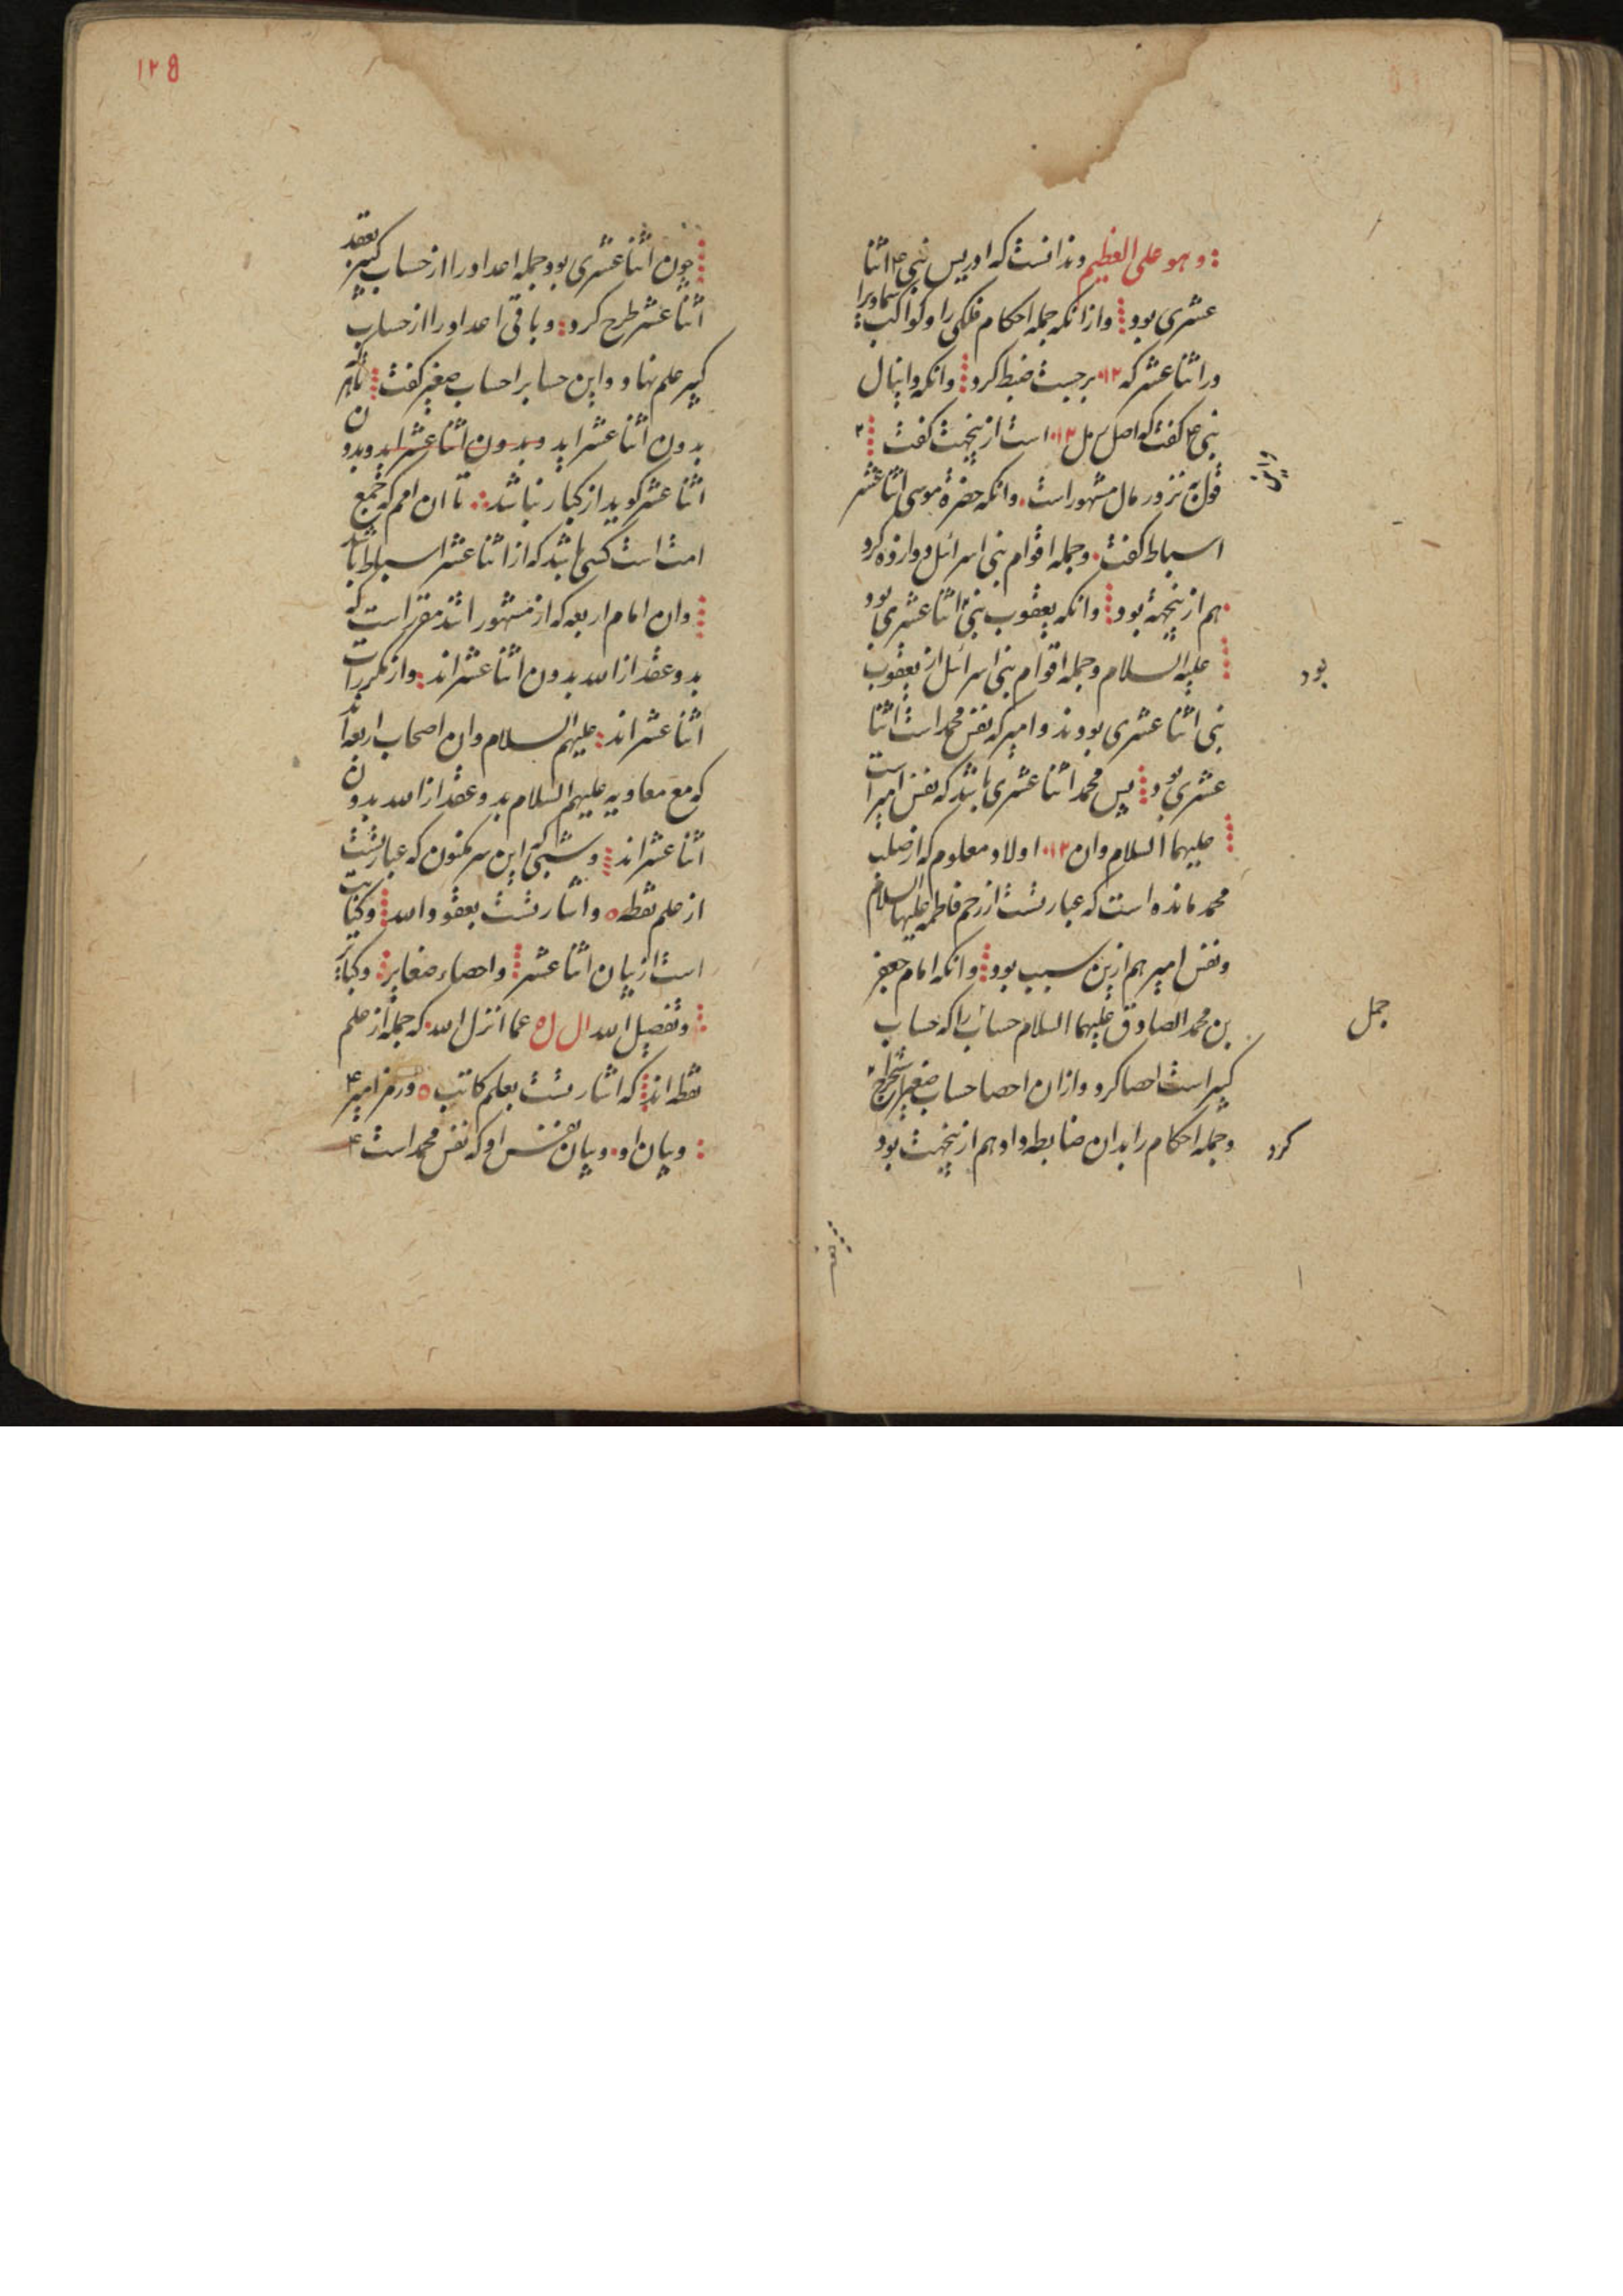 وهو علی العظیم وندانست که ادریس نبی ع اثنا
عشری بود وازانکه جمله احکام فلکی را وکواکب سماویرا
دراثنا عشر که ۱۲ برجیست ضبط کرد وانکه دانیال
نبی ع گفت که اصل رمل ۱۲ است ازینجهت گفت
قول نزد رمال مشهور است وانکه حضرة موسی اثنا عشر
اسباط گفت وجمله اقوام بنی اسرائل دوازده کرد
هم ازینجهة بود وانکه یعقوب بنی اثنا عشری بود
علیه السلام وجمله اقوام بنی اسرائل از یعقوب
بود
نبی اثنا عشری بودند وامیر که نفس محمد است اثنا
عشری بود پس محمد اثنا عشری باشد که نفس امیر است
علیهما السلام وان ۱۲ اولاد معلوم که از صلب
محمد مانده است که عبارتست از رحم فاطمه علیها السلام
ونفس امیر هم ازین سبب بود وانکه امام جعفر
بن محمد الصادق علیهما السلام حساب را که حساب
جمل
کبیر است احصا کرد وازان احصا حساب صغیر استخراج
کرد
وجمله احکام را بدان ضابطه داد هم ازینجهت بود
۱۲۵
چون اثنا عشری بود جمله اعداد را از حساب کبیر بعقد
اثنا عشر طرح کرد وباقی اعداد را از حساب
کبیر علم نهاد واین حساب را حساب صغیر گفت تا هر که
بدون اثنا عشر اید وبدون اثنا عشر اید وبدون
اثنا عشر گوید از کبار نباشد تا ان امم که جمع
امت است کسی باشد که از اثنا عشر اسباط باشد
وان امام اربعه که از مشهور اند مقرر است که
بدو عقد از الله بدون اثنا عشراند واز مکررات
اثنا عشراند علیهم السلام وان اصحاب اربعه اند
که مع معاویه علیهم السلام بدو عقد از الله بدون
اثنا عشراند این سر مکنون که عبارتست
از علم نقطه واشارتست بعقود الله وکنایت
است از بیان اثنا عشر واحصاء صغایر وکبایر
وتفصیل الله ال ل ه عما انزل الله که جمله از علم
نقطه اند که اشارتست بعلم کاتب ورمز امیر ع
وبیان او وبیان نفس او که نفس محمد است ع